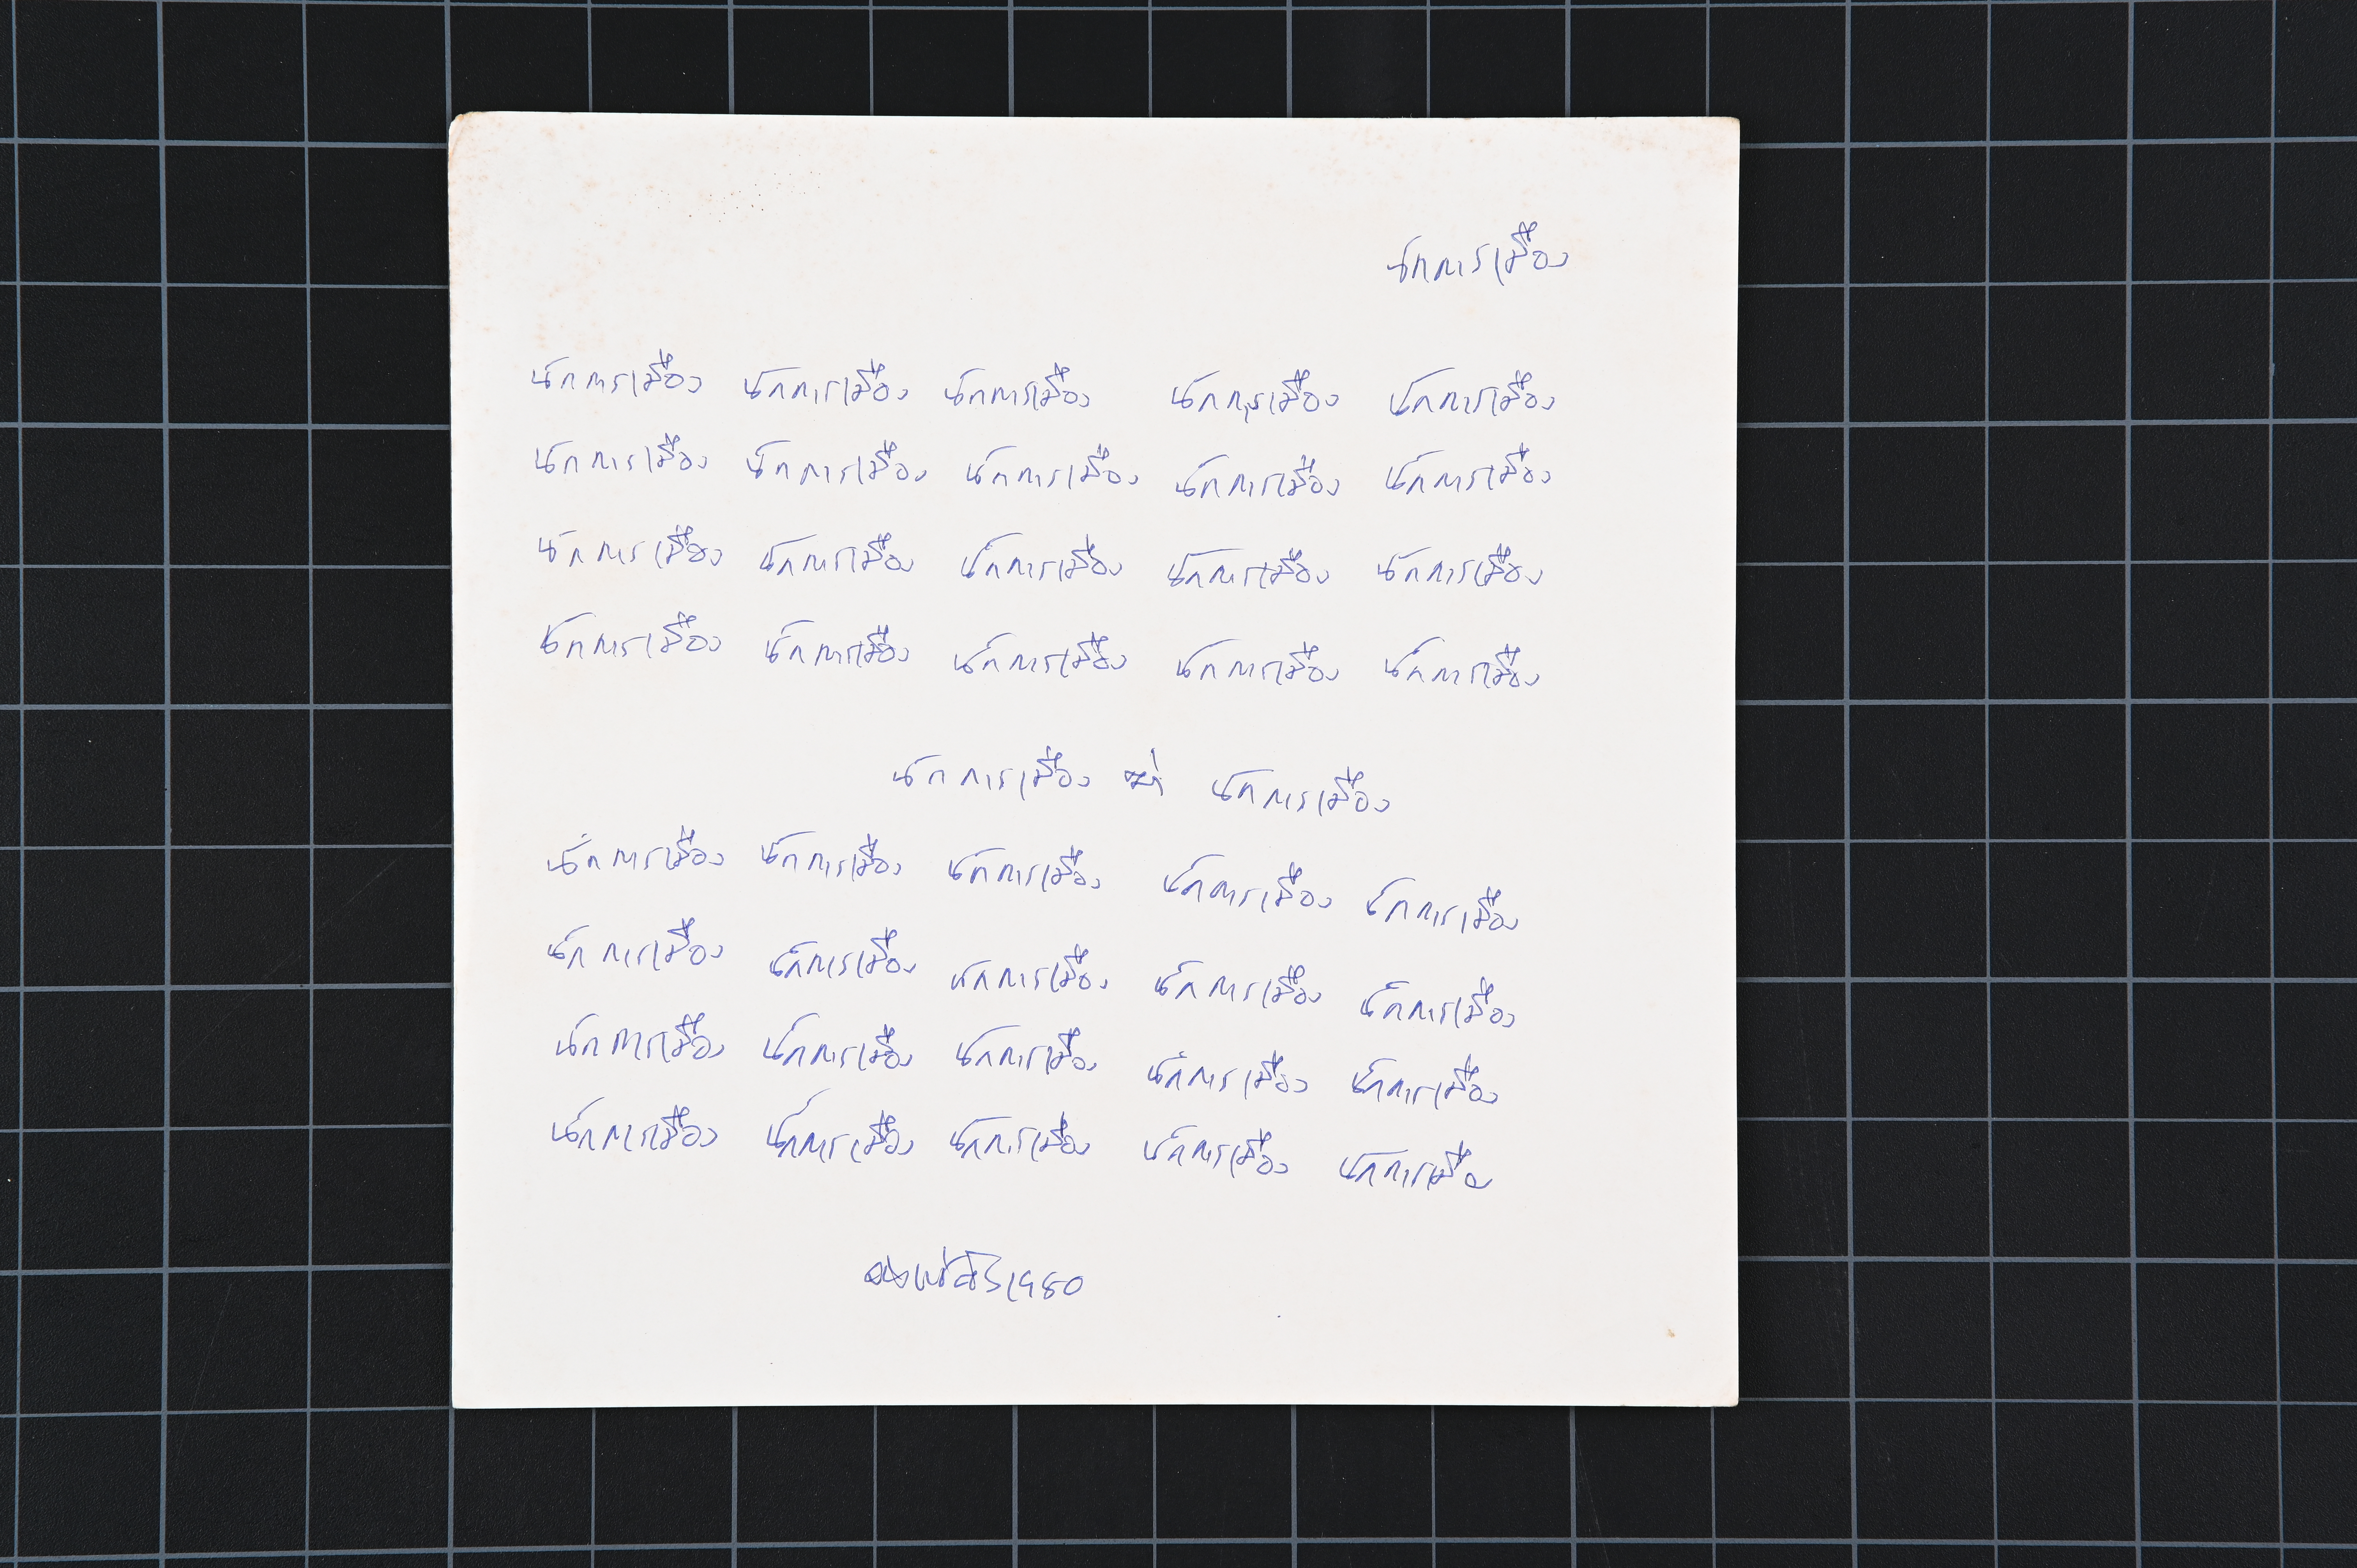 นักการเมือง
นักการเมือง นักการเมือง นักการเมือง นักการเมือง นักการเมือง
นักการเมือง นักการเมือง นักการเมือง นักการเมือง นักการเมือง
นักการเมือง นักการเมือง นักการเมือง นักการเมือง นักการเมือง
นักการเมือง นักการเมือง นักการเมือง นักการเมือง นักการเมือง
นักการเมือง ฆ่า นักการเมือง
นักการเมือง นักการเมือง นักการเมือง นักการเมือง นักการเมือง
นักการเมือง นักการเมือง นักการเมือง นักการเมือง นักการเมือง
นักการเมือง นักการเมือง นักการเมือง นักการเมือง นักการเมือง
นักการเมือง นักการเมือง นักการเมือง นักการเมือง นักการเมือ
1980